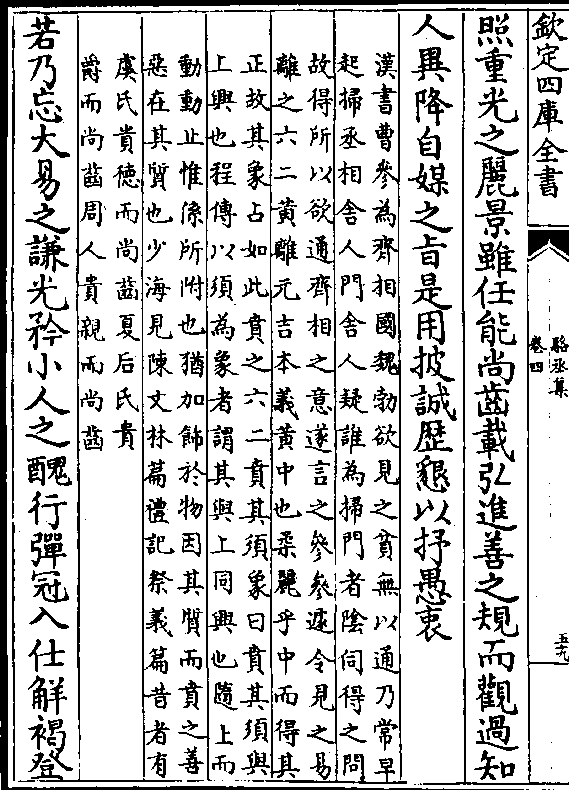 欽定四庫全書
駱丞集
卷四
五九
照重光之麗景雖任能尚齒載弘進善之規而觀過知
人異降自媒之旨是用披誠歷懇以抒愚衷
漢書曹參為齊相國魏勃欲見之貧無以通乃常早
起掃丞相舍人門舍人疑誰為掃門者陰伺得之問
故得所以欲通齊相之意遂言之參參遽令見之易
離之六二黄離元吉本義黄中也柔麗乎中而得其
正故其象占如此賁之六二賁其須象曰賁其須與
上興也程傳以須為象者謂其與上同興也隨上而
動動止惟係所附也猶加飾於物因其質而賁之善
惡在其質也少海見陳文林篇禮記祭義篇昔者有
虞氏貴德而尚齒夏后氏貴
爵而尚齒周人貴親而尚齒
若乃忘大易之謙光矜小人之醜行彈冠入仕解褐登